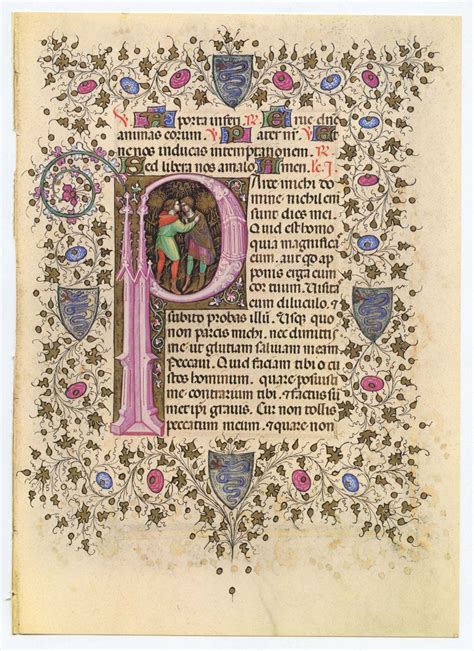 V A porta inferi R Erue dne
animas eorum. V Pater nr V Et
ne nos inducas intemptationem. R
Sed libera nos amalo Amen. lc. I
Parce michi do
mine nichil eni
sunt dies mei.
Quid est homo
quia magnificas
eum. aut qd ap
ponis erga eum
cor tuum. Visitas
eum diluculo. et
subito probas illū. Usqz quo
non parcis michi, nec dimittis
me ut glutiam saliuam meam.
Peccaui. Quid faciam tibi o cu
stos hominum. quare posuisti
me contrarium tibi. & factus su
metipi grauis. Cur non tollis
peccatum meum. & quare non